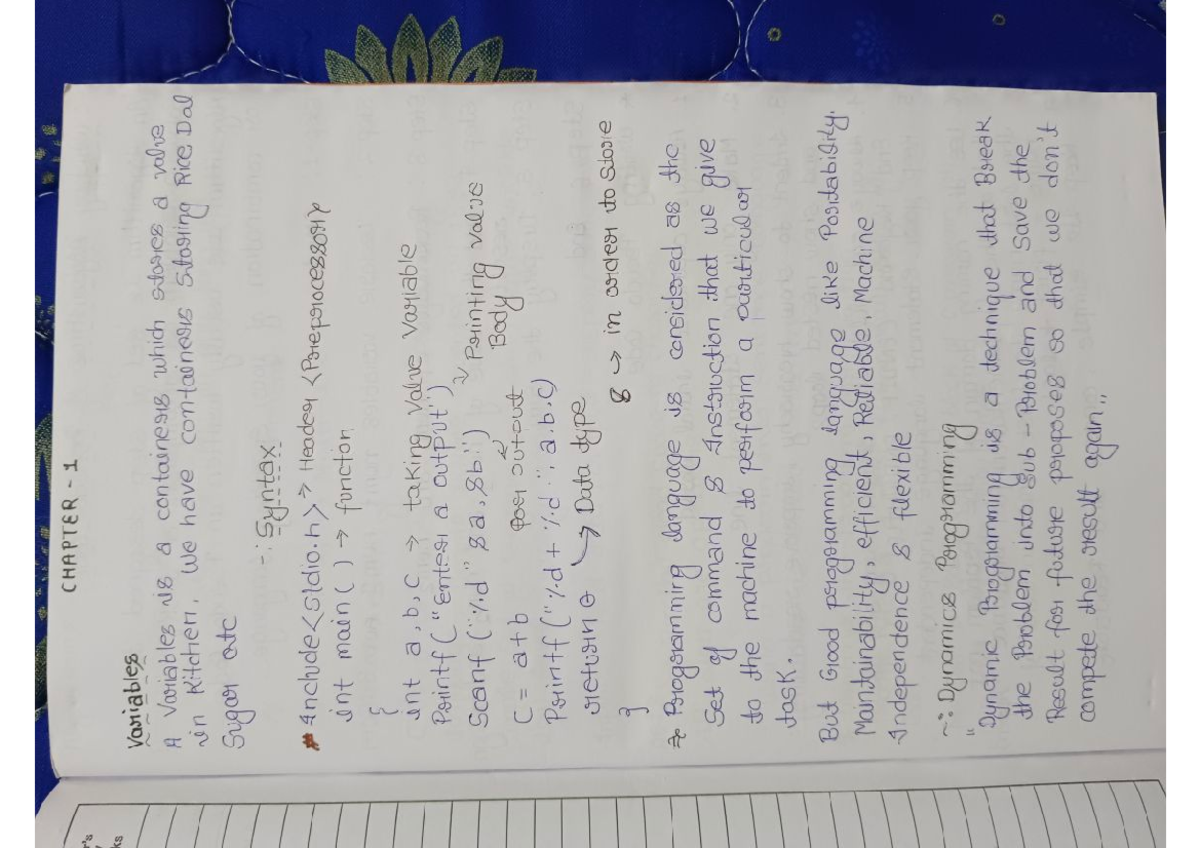 CHAPTER - 1
Variables
A Variables is a containers which stores a value
in Kitchen, we have containers Storing Rice Dal
Sugar etc
-: Syntax
# Include<stdio.h> → Header <Preprocessor>
int main( ) → function
{
int a, b, c → taking value variable
Printf ( "Enter a output")
Scanf ("%d" &a, &b:") Printing value
C = a+b for output Body
Printf ("%d + %d :; a.b.c)
return 0 → Data type
} & → in order to store
Programming language is considered as the
Set of command & Instruction that we give
to the machine to perform a particular
task.
But Good programming language like Portability,
Maintainability, efficient, Reliable, Machine
Independence & flexible
Dynamics Programming
"Dynamic Programming is a technique that Break
the Problem into Sub - Problem and Save the
Result for future proposes so that we don't
compete the result again,,
's
ks